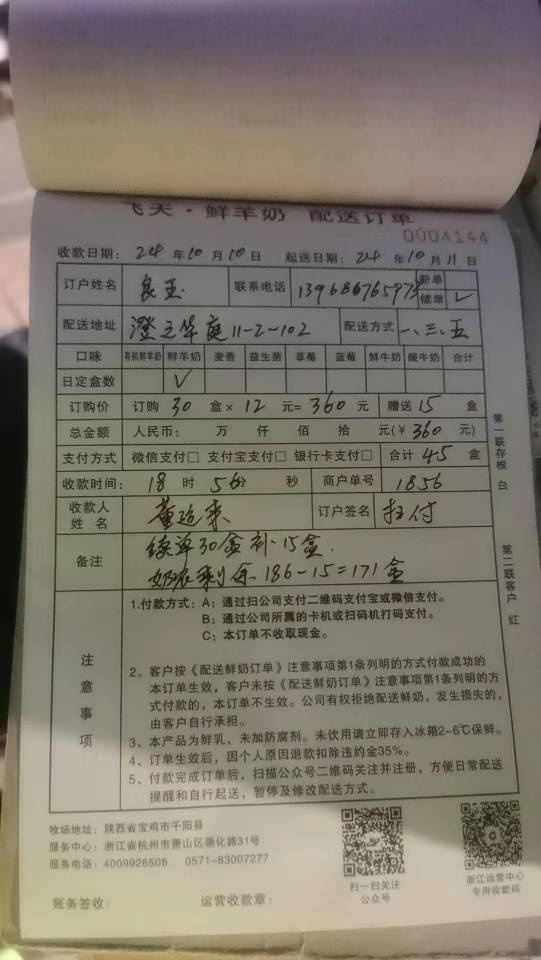 飞天·鲜羊奶 配送订单
0004144
收款日期：24年10月10日 起送日期：24年10月11日
订户姓名 良玉 联系电话 139686765973 新单
续单 ✓
配送地址 澄之华庭11-2-102 配送方式 一、三、五
口味 有机鲜羊奶 鲜羊奶 麦香 益生菌 草莓 蓝莓 鲜牛奶 酸牛奶 合计
日定盒数 ✓
订购价 订购 30 盒× 12 元= 360 元 赠送 15 盒
总金额 人民币： 万 仟 佰 拾 元(￥360 元)
支付方式 微信支付□ 支付宝支付□ 银行卡支付□ 合计 45 盒
收款时间： 18 时 56 分 秒 商户单号 1856
收款人姓名 订户签名 扫付
备注 续单30盒补15盒.
186-15=171盒
第一联存根 白
第二联客户 红
注意事项
1.付款方式：A；通过扫公司支付二维码支付宝或微信支付。
B；通过公司所属的卡机或扫码机打码支付。
C；本订单不收取现金。
2、客户按《配送鲜奶订单》注意事项第1条列明的方式付款成功的
本订单生效，客户未按《配送鲜奶订单》注意事项第1条列明的方
式付款的，本订单不生效。公司有权拒绝配送鲜奶，发生损失的，
由客户自行承担。
3、本产品为鲜乳，未加防腐剂。未饮用请立即存入冰箱2-6℃保鲜。
4、订单生效后，因个人原因退款扣除违约金35%。
5、付款完成订单后，扫描公众号二维码关注并注册，方便日常配送
提醒和自行起送，暂停及修改配送方式。
牧场地址：陕西省宝鸡市千阳县
服务中心：浙江省杭州市萧山区崇化路31号
服务电话：4009926506 0571-83007277
扫一扫关注
公众号
浙江运营中心
专用收款码
账务签收： 运营收款章：